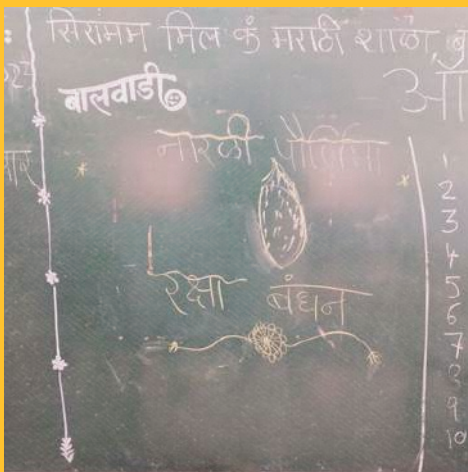 सिरॅमम मिल कं मराठी शाळा
बालवाडी
नारळी पौर्णिमा
रक्षा बंधन
1
2
3
4
5
6
7
8
9
10